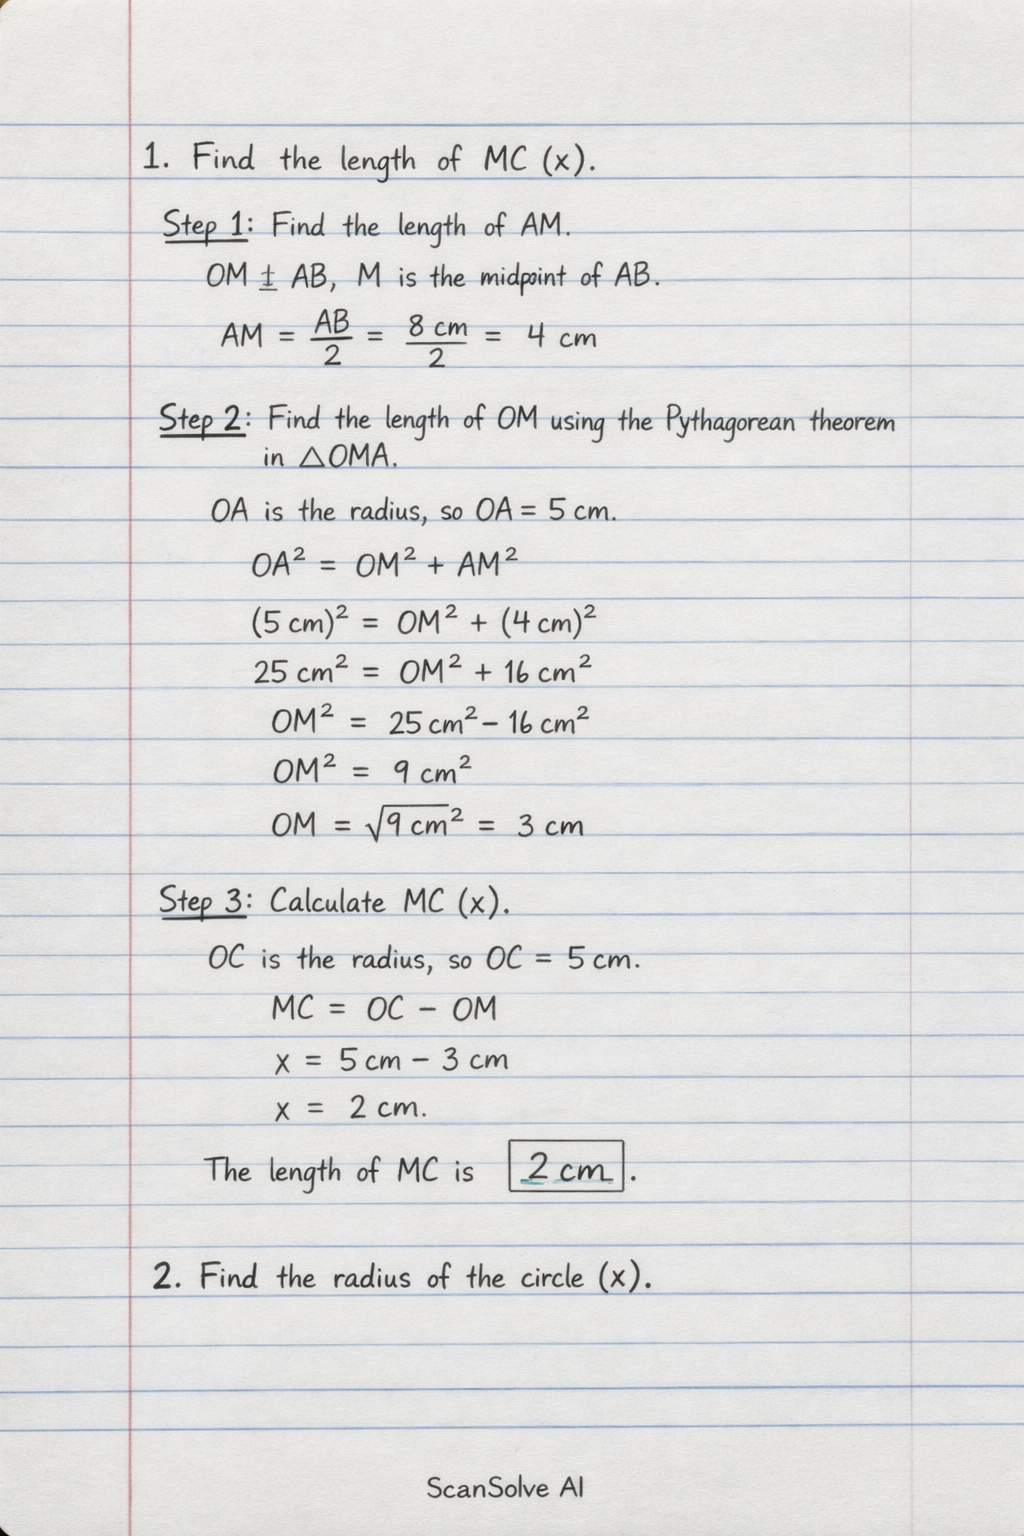 1. Find the length of MC (x).
Step 1: Find the length of AM.
OM ± AB, M is the midpoint of AB.
AM = AB/2 = 8 cm/2 = 4 cm
Step 2: Find the length of OM using the Pythagorean theorem
in △OMA.
OA is the radius, so OA = 5 cm.
OA² = OM² + AM²
(5 cm)² = OM² + (4 cm)²
25 cm² = OM² + 16 cm²
OM² = 25 cm² − 16 cm²
OM² = 9 cm²
OM = √9 cm² = 3 cm
Step 3: Calculate MC (x).
OC is the radius, so OC = 5 cm.
MC = OC − OM
x = 5 cm − 3 cm
x = 2 cm.
The length of MC is 2 cm.
2. Find the radius of the circle (x).
ScanSolve AI